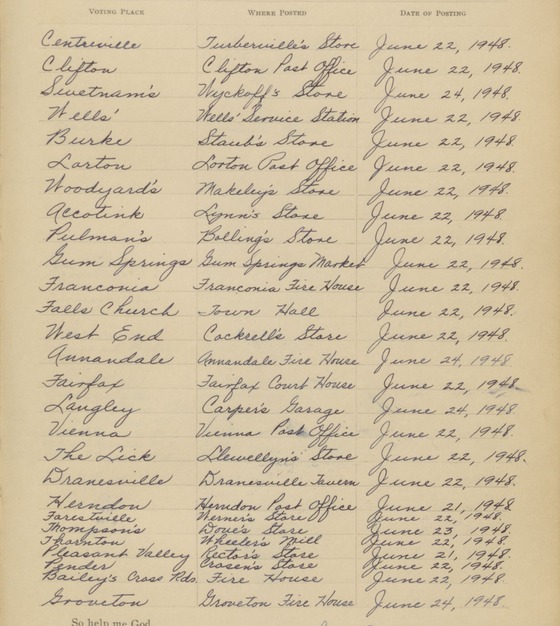 VOTING PLACE WHERE POSTED DATE OF POSTING
Centreville Turberville's Store June 22, 1948.
Clifton Clifton Post Office June 22, 1948.
Swetnam's Wyckoff's Store June 24, 1948.
Wells' Wells' Service Station June 22, 1948.
Burke Staub's Store June 22, 1948.
Lorton Lorton Post Office June 22, 1948.
Woodyard's Makeley's Store June 22, 1948.
Accotink Lynn's Store June 22, 1948
Pulman's Bolling's Store June 22, 1948.
Gum Springs Gum Springs Market June 22, 1948.
Franconia Franconia Fire House June 22, 1948.
Falls Church Town Hall June 22, 1948.
West End Cockrell's Store June 22, 1948.
Annandale Annandale Fire House June 24, 1948
Fairfax Fairfax Court House June 22, 1948.
Langley Carper's Garage June 24, 1948
Vienna Vienna Post Office June 22, 1948.
The Lick Llewellyn's Store June 22, 1948.
Dranesville Dranesville Tavern June 22, 1948.
Herndon Herndon Post Office June 21, 1948
Forestville Store June 22, 1948.
Thompson's Dove's Store June 23, 1948.
Thornton Wheeler's Mill June 22, 1948.
Pleasant Valley Rector's Store June 21, 1948.
Pender Crosen's Store June 22, 1948.
Bailey's Cross Rds. Fire House June 22, 1948.
Groveton Groveton Fire House June 24, 1948.
So help me God